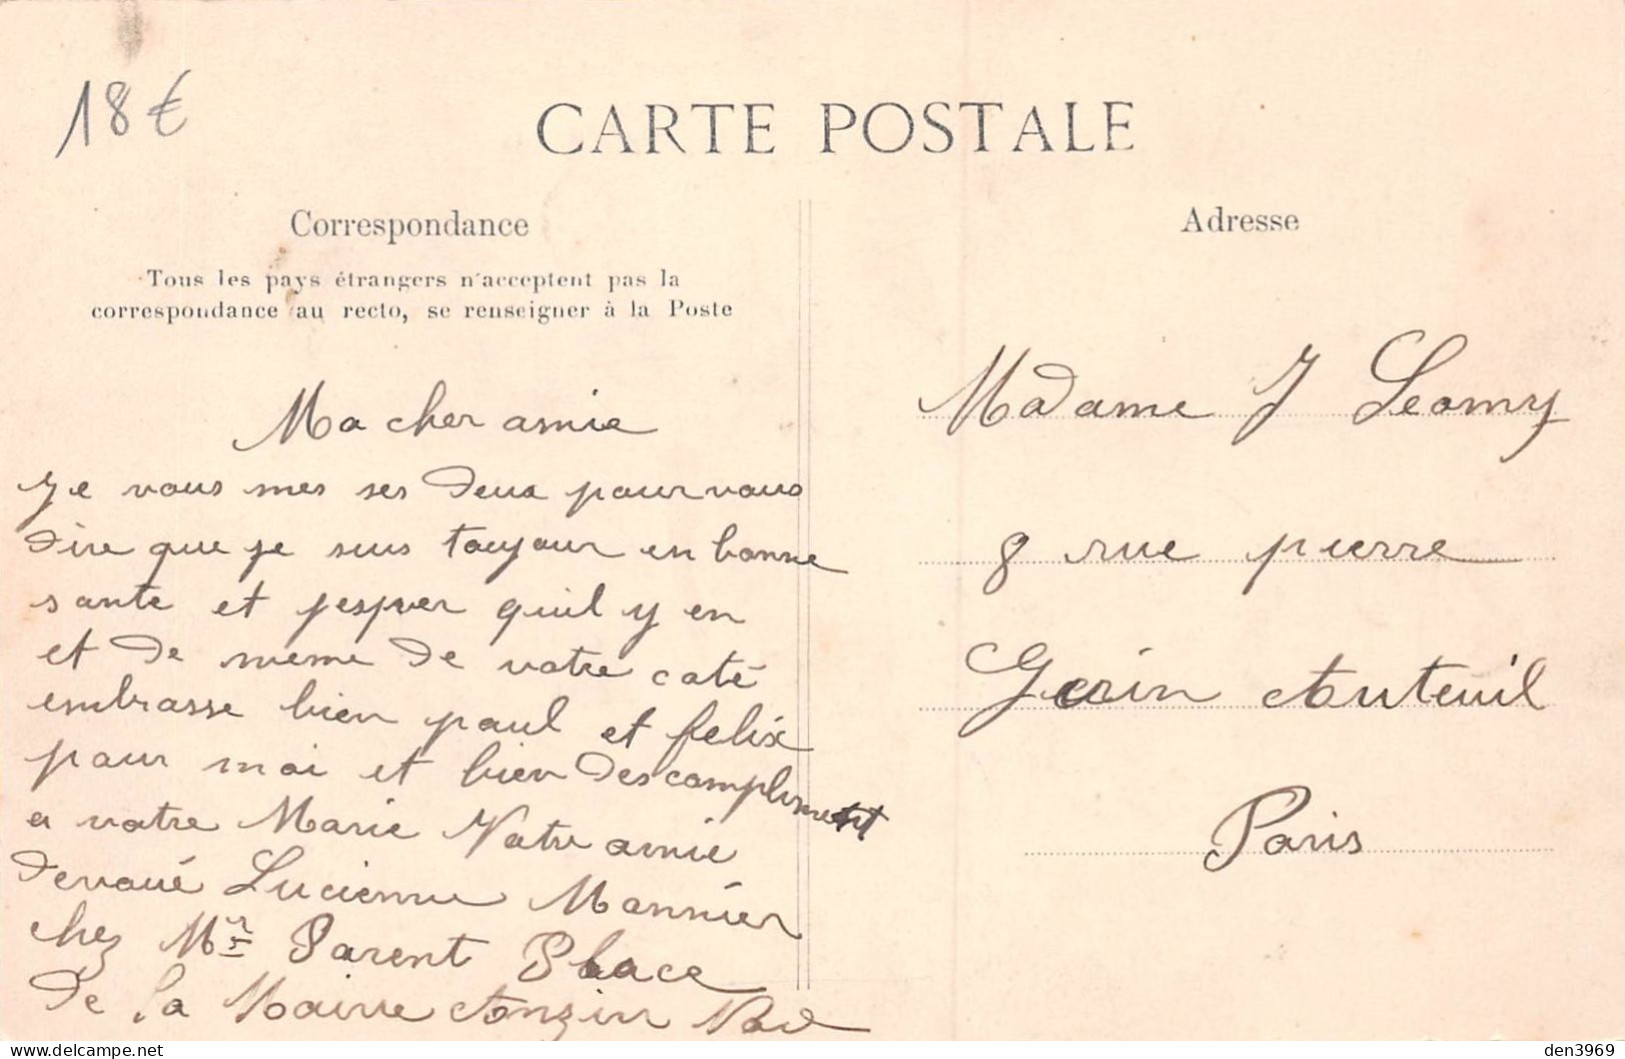 18€
CARTE POSTALE
Correspondance
Tous les pays étrangers n'acceptent pas la
correspondance au recto, se renseigner à la Poste
Ma cher amie
Je vous mes ses deux pour vous
dire que je suis toujour en bonne
sante et jesper quil y en
et de meme de votre caté
embrasse bien paul et felix
pour moi et bien des compliment
a votre Marie Votre amie
devoué Lucienne Monnier
chez Mr Parent Place
de la Mairie Anzin Nord
Adresse
Madame J Leomy
8 rue pierre
Gerin Auteuil
Paris
den3969